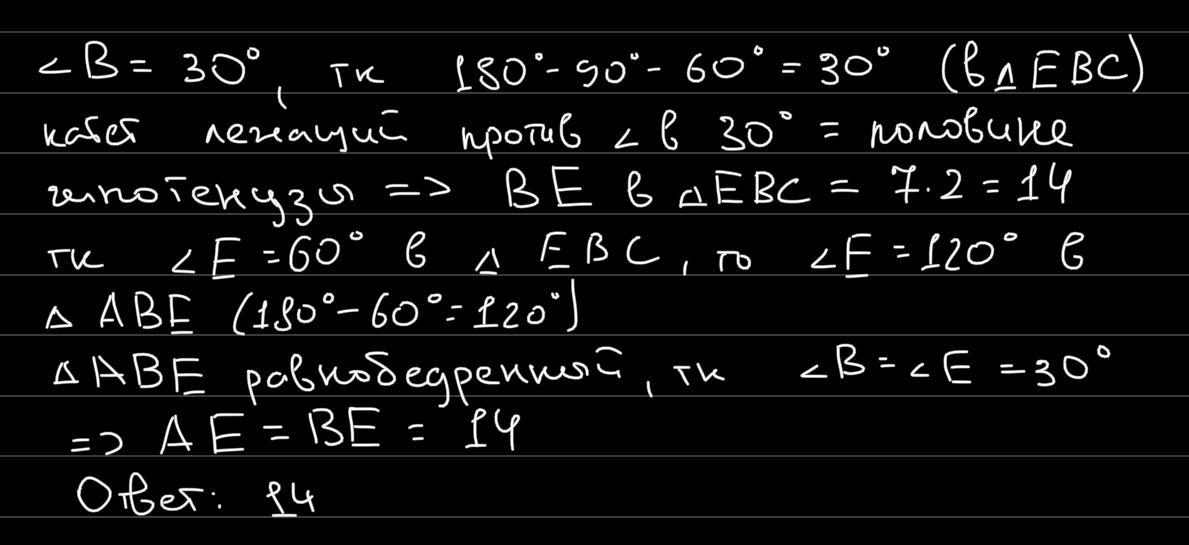 ∠B = 30°, тк 180°-90°-60°=30° (в △EBC)
катет лежащий против ∠ в 30° = половине
гипотенузы => BE в △EBC = 7·2=14
тк ∠E=60° в △ EBC, то ∠E=120° в
△ ABE (180°-60°=120°)
△ABE равнобедренный, тк ∠B=∠E=30°
=> AE=BE= 14
Ответ: 14